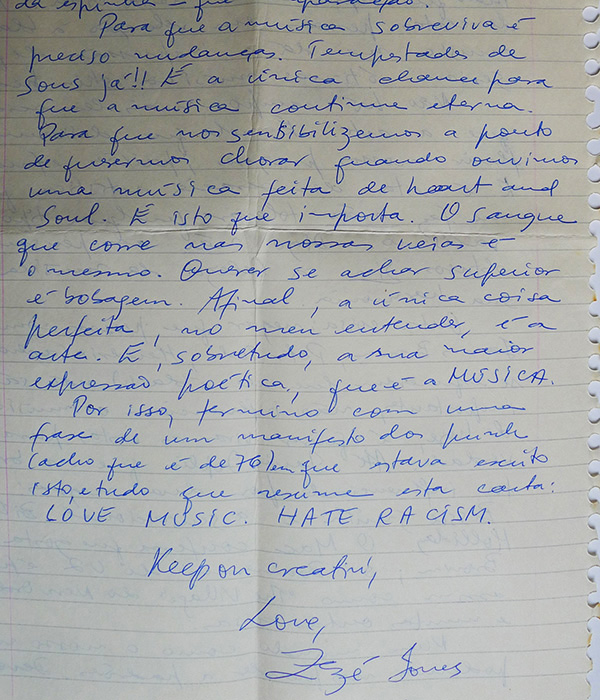 da espinha – que
Para que a música sobreviva é
preciso mudanças. Tempestades de
sons já!! É a única chance para
que a música continue eterna.
Para que nos sentibilizemos a ponto
de querermos chorar quando ouvimos
uma música feita de heart and
Soul. É isto que importa. O sangue
que corre nas nossas veias é
o mesmo. Querer se achar superior
é bobagem. Afinal, a única coisa
perfeita, no meu entender, é a
arte. E, sobretudo, a sua maior
expressão poética, que é a MÚSICA.
Por isso, termino com uma
frase de um manifesto dos punk
(acho que é de 76) em que estava escrito
isto, e tudo que resume esta carta:
LOVE MUSIC. HATE RACISM.
Keep on creatin',
Love,
Zezé Jones